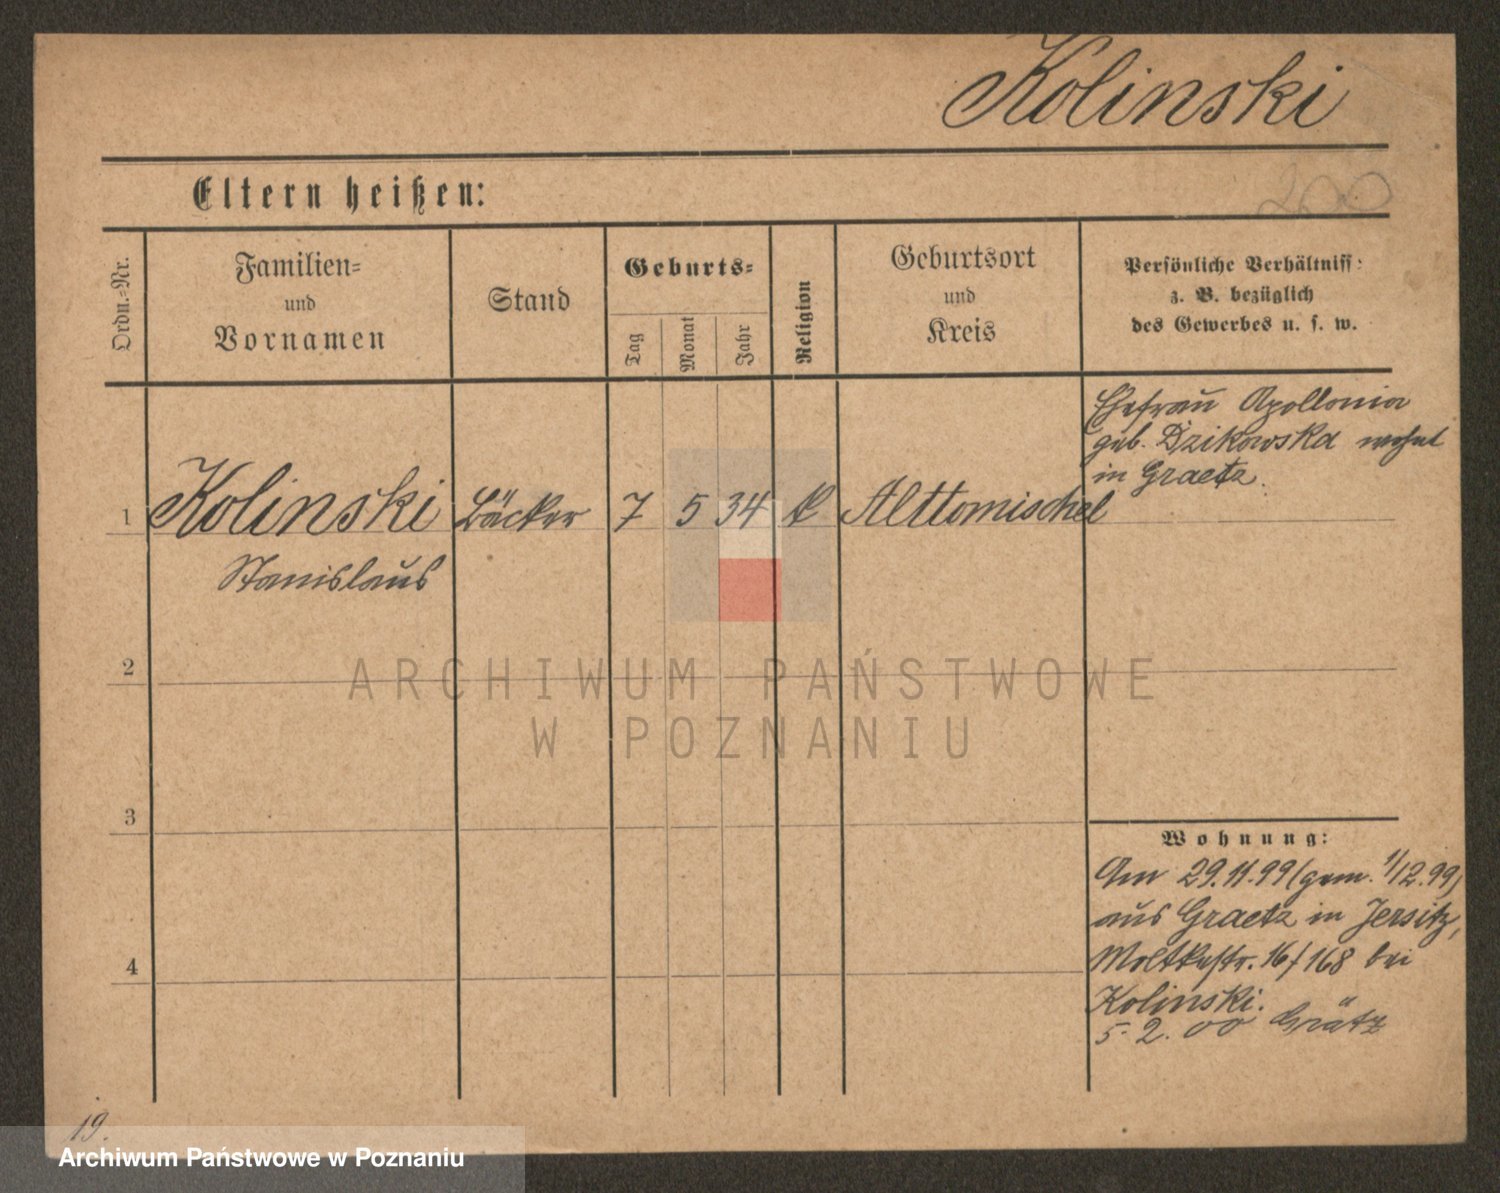 Kolinski
Eltern heißen:
200
Ordn.=Nr.
Familien=
und
Vornamen
Stand
Geburts=
Tag
Monat
Jahr
Religion
Geburtsort
und
Kreis
Persönliche Verhältniss:
z. B. bezüglich
des Gewerbes u. s. w.
Ehefrau Apollonia
geb. Dzikowska wohnt
in Graetz.
1 Kolinski Bäcker 7 5 34 k Alttomischel
Stanislaus
2
3
4
Wohnung:
Am 29.11.99 (gem. 1/12.99)
aus Graetz in Jersitz,
Moltkestr. 16/168 bei
Kolinski.
5. 2. 00 Grätz
19.
ARCHIWUM PAŃSTWOWE
W POZNANIU
Archiwum Państwowe w Poznaniu